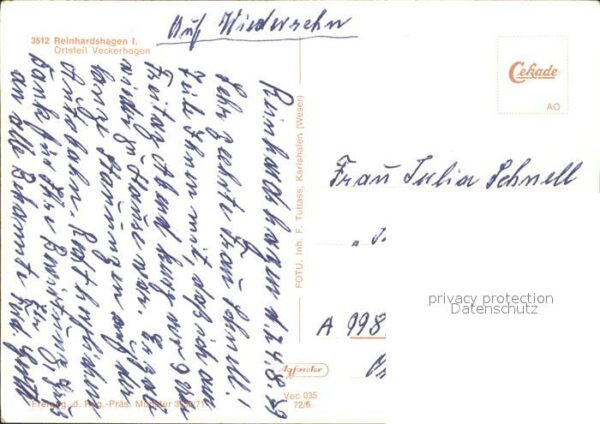 Auf Wiedersehn
3512 Reinhardshagen I.
Ortsteil Veckerhagen
Reinhardshagen d. 24.8.89
Sehr geehrte Frau Schnell!
Teile Ihnen mit, daß ich am
Freitag Abend kurz vor 9 Uhr
wieder zu Hause war. Es gab
lange Stauungen auf der
Autobahn. Recht herzlichen
Dank für Ihre Bewirtung,
an alle Bekannte
FOTU, Inh. F. Tuttass, Karlshafen (Weser)
Cekade
AO
Frau Julia Schnell
privacy protection
Datenschutz
A 998
Agfacolor
Vec 035
72/6
Freigeg. d. Reg.-Präs. Münster